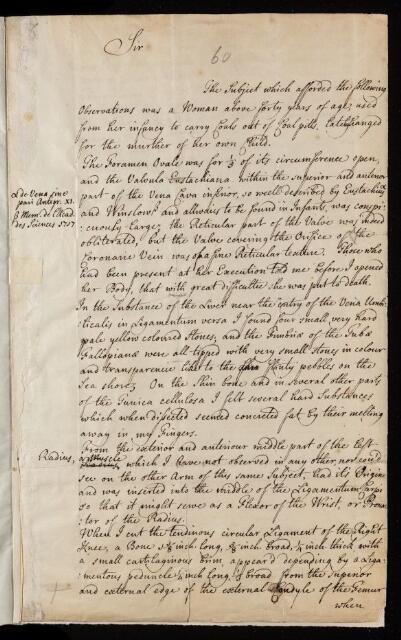 Sir
60
The Subject which afforded the following
Observations was a Woman above forty years of age, used
from her infancy to carry Coals out of Coal pitts, & hanged
for the murther of her own Child.
The Foramen Ovale was for ⅓ of its circumference open,
and the Valvula Eustachiana within the superior and anterior
part of the Vena Cava inferior, so well described by Eustachius
and Winslow & allowed to be found in Infants, was conspi-
cuously Large; the Reticular part of the Valve was indeed
obliterated, but the Valve covering the Orifice of the
Coronaire Vein was of a fine Reticular texture. Those who
had been present at her Execution told me before I opened
her Body, that with great difficulty she was put to death.
In the Substance of the Liver near the entry of the Vena Umbi-
licalis in Ligamentum versa I found four small very hard
pale yellow coloured Stones, and the Fimbriæ of the Tubæ
Fallopianæ were all tipped with very small Stones in colour
and transparence like to the flinty pebbles on the
Sea shore; On the shin bone and in several other parts
of the Tunica cellulosa I felt several hard Substances
which when dissected seemed concreted fat by their melting
away in my Fingers.
From the exterior and anteriour middle part of the Left
Radius, a Muscle which I have not observed in any other, nor could
see on the other Arm of this same Subject, had its Origine
and was inserted into the middle of the Ligamentum Carpi
so that it might serve as a Flexor of the Wrist, or Prona-
tor of the Radius.
When I cut the tendinous circular Ligament of the Right
Knee, a Bone inch long, inch broad, ¼ inch thick with
a small cartilaginous brim appear'd depending by a Liga-
mentous peduncle inch long, broad from the superior
and external edge of the external Condyle of the Femur
when
α de Vena sine
pari Antigr. XI.
β Mem. de l'Acad.
des Sciences 1717